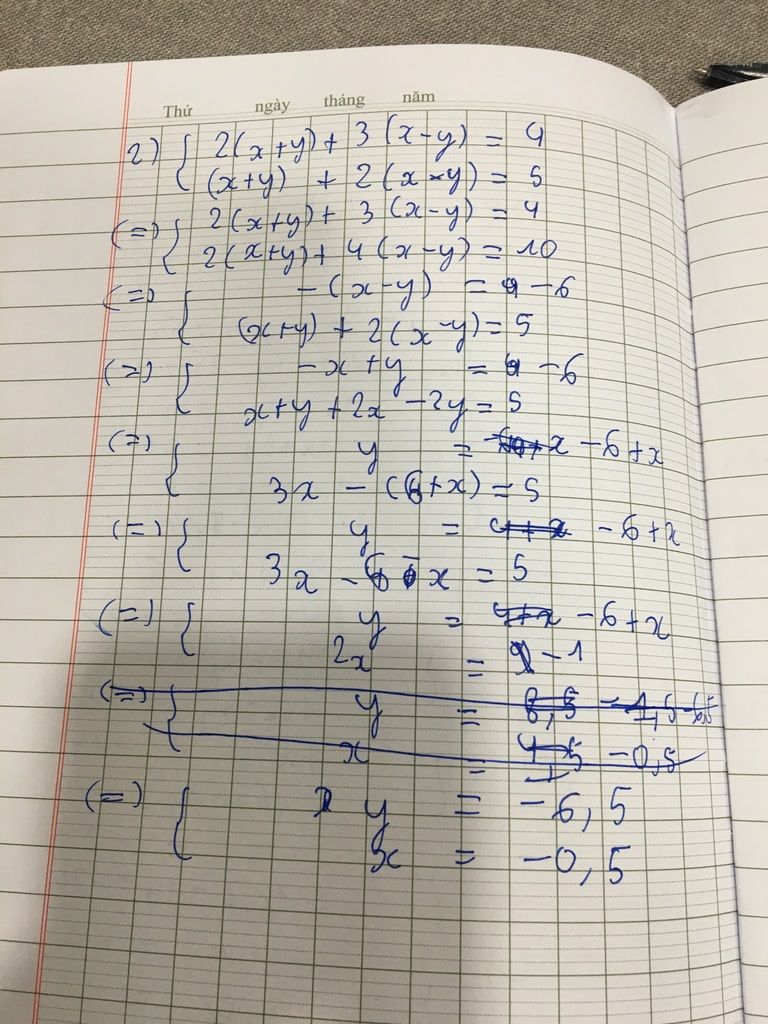 Thứ ngày tháng năm
2) { 2(x+y) + 3(x-y) = 4
(x+y) + 2(x-y) = 5
(=) { 2(x+y) + 3(x-y) = 4
2(x+y) + 4(x-y) = 10
(=) { -(x-y) = -6
(x+y) + 2(x-y) = 5
(=) { -x+y = -6
x+y+2x-2y = 5
(=) { y = -6+x
3x - (6+x) = 5
(=) { y = -6+x
3x - 6 - x = 5
(=) { y = -6+x
2x = -1
(=) { y =
x = -0,5
(=) { y = -6,5
x = -0,5